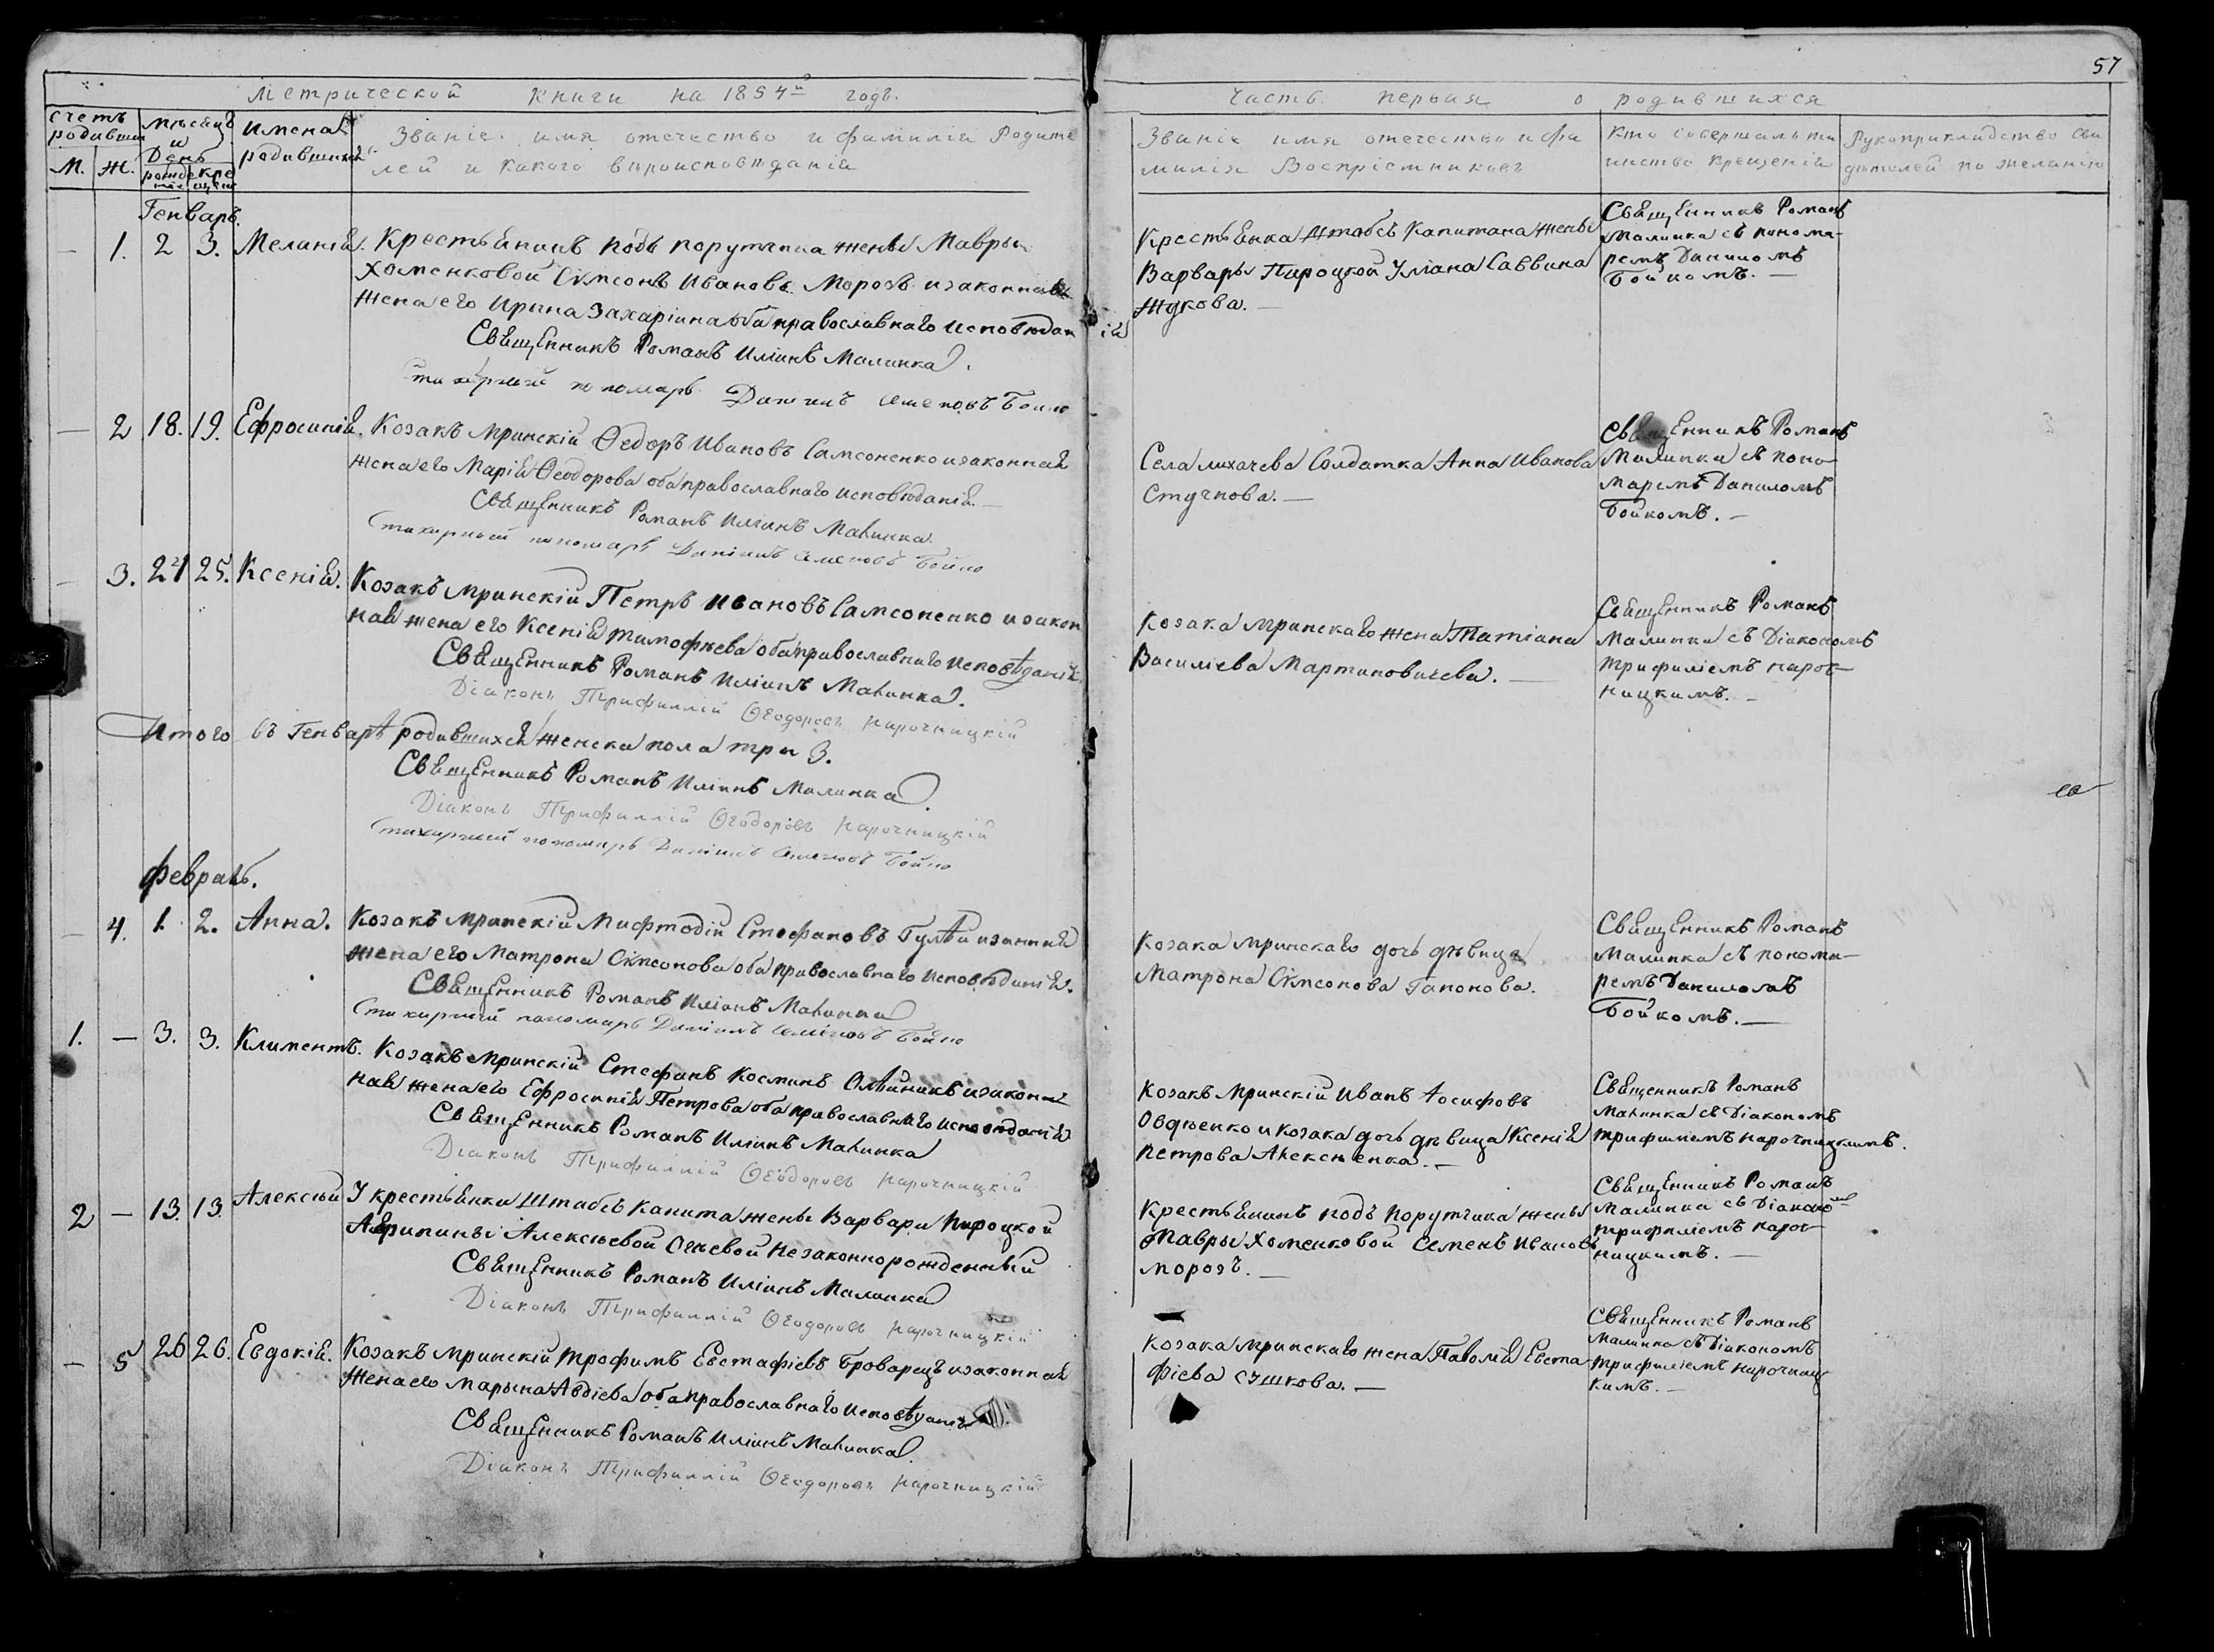 57
Метрической Книги на 1854й годъ.
Часть первая о родившихся
Счетъ родивши
М. Ж.
Мѣсяцъ и День
рожде крещен
Имена родившихся
Званіе имя отечество и фамилія Родите
лей и какого вѣроисповѣданія
Званіе имя отечество и фа
милія Воспріемниковъ
Кто совершалъ та
инство крещенія
Рукоприкладство сви
дѣтелей по желанію
Генварь.
— 1. 2 3. Меланія.
Крестьянинъ подъ порутчика жены Мавры
Хоменковой Сѵмеонъ Ивановъ Морозъ и законная
жена его Ирина Захаріина оба православнаго исповѣданія
Священникъ Романъ Иліинъ Малинка.
Стихарный пономарь Даніилъ Семеновъ Бойко
Крестьянка Штабсъ Капитана жены
Варвары Пироцкой Уліана Саввина
Жукова. —
Священникъ Романъ
Малинка съ понома-
ремъ Даниломъ
Бойкомъ. —
— 2 18. 19. Ефросинія.
Козакъ Мринскій Ѳедоръ Ивановъ Самсоненко и законная
жена его Марія Ѳеодорова оба православнаго исповѣданія. —
Священникъ Романъ Иліинъ Малинка.
Стихарный пономарь Даніилъ Семеновъ Бойко
Села Лихачева Солдатка Анна Иванова
Стучнова. —
Священникъ Романъ
Малинка съ поно-
маремъ Даниломъ
Бойкомъ. —
— 3. 24 25. Ксенія.
Козакъ Мринскій Петръ Ивановъ Самсоненко и закон
ная жена его Ксенія Тимофѣева оба православнаго исповѣданія.
Священникъ Романъ Иліинъ Малинка.
Діаконъ Трифиллій Ѳеодоровъ Нарочницкій
Козака Мринскаго жена Татіана
Василіева Мартиновичева. —
Священникъ Романъ
Малинка съ Діакономъ
Трифиліемъ Нароч-
ницкимъ. —
Итого въ Генварѣ родившихся женска пола три 3.
Священникъ Романъ Иліинъ Малинка.
Діаконъ Трифиллій Ѳеодоровъ Нарочницкій
Стихарный пономарь Даніилъ Семеновъ Бойко
Февраль.
— 4. 1. 2. Анна.
Козакъ Мринскій Мифтодій Стефановъ
жена его Матрона Сѵмеонова оба православнаго исповѣданія.
Священникъ Романъ Иліинъ Малинка
Стихарный пономарь Даніилъ Семеновъ Бойко
Козака Мринскаго дочь дѣвица
Матрона Сѵмеонова Гапонова.
Священникъ Романъ
Малинка съ понома-
ремъ Даниломъ
Бойкомъ. —
1. — 3. 3. Климентъ.
Козакъ Мринскій Стефанъ Косминъ Олѣйникъ и закон
ная жена его Ефросинія Петрова оба православнаго исповѣданія
Священникъ Романъ Иліинъ Малинка
Діаконъ Трифиллій Ѳеодоровъ Нарочницкій
Козакъ Мринскій Иванъ Іосифовъ
Овдѣенко и козака дочь дѣвица Ксенія
Петрова Алексѣенка. —
Священникъ Романъ
Малинка съ Діакономъ
Трифиліемъ Нарочницкимъ.
2 — 13. 13. Алексѣй
У крестьянки Штабсъ Капита жены Варвары Пироцкой
Агрипины Алексѣевой незаконнорожденный
Священникъ Романъ Иліинъ Малинка
Діаконъ Трифиллій Ѳеодоровъ Нарочницкій
Крестьянинъ подъ порутчика жены
Мавры Хоменковой Семенъ Ивановъ
Морозъ. —
Священникъ Романъ
Малинка съ Діаконо
Трифиліемъ Нароч-
ницкимъ. —
— 5 26 26. Евдокія.
Козакъ Мринскій Трофимъ Евстафіевъ Броварецъ и законная
жена его Марьина Авдіева оба православнаго исповѣданія
Священникъ Романъ Иліинъ Малинка.
Діаконъ Трифиллій Ѳеодоровъ Нарочницкій
Козака Мринскаго жена Евста
фіева Сушкова. —
Священникъ Романъ
Малинка съ Діакономъ
Трифиліемъ Нарочниц
кимъ. —